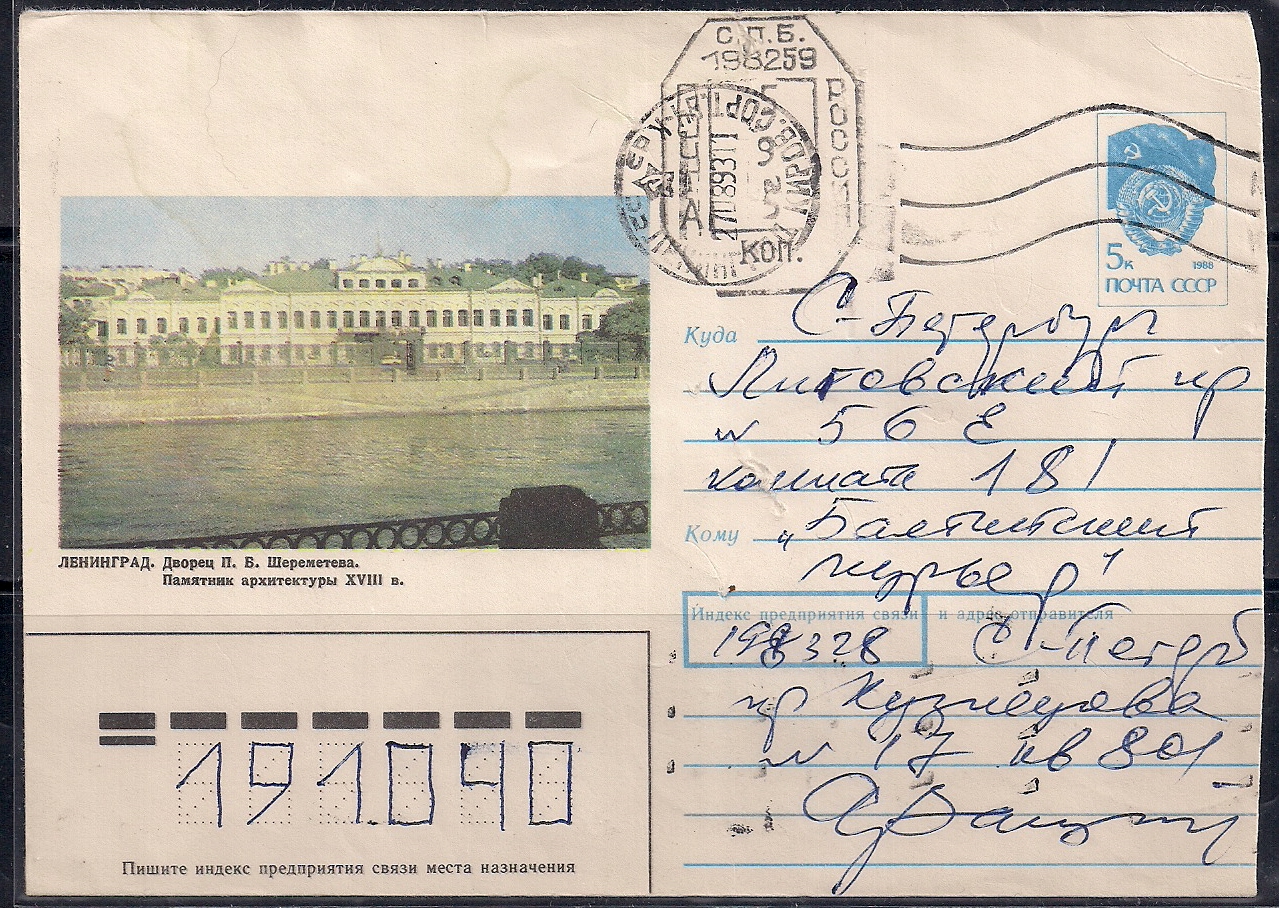 С.П.Б.
198259
РОССИЯ
коп.
27089311
5к 1988
ПОЧТА СССР
ЛЕНИНГРАД. Дворец П. Б. Шереметева.
Памятник архитектуры XVIII в.
Куда С-Петербург
Лиговский пр
N 56 Е
комната 181
Кому „Балтийский
курьер"
Индекс предприятия связи и адрес отправителя
198328 С-Петерб
пр Кузнецова
N 17 кв 801
191040
Пишите индекс предприятия связи места назначения